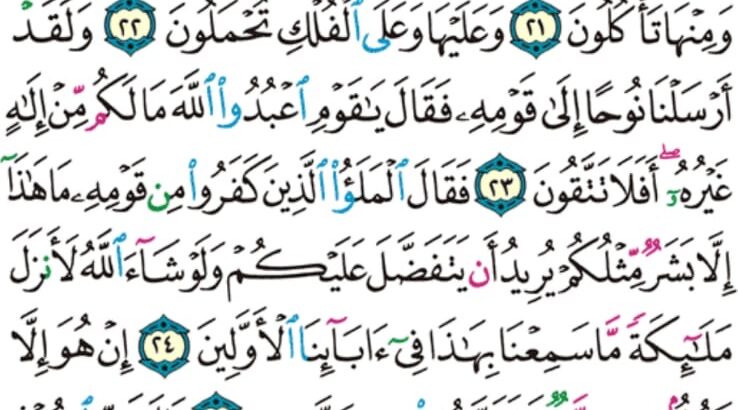 وَمِنْهَا تَأْكُلُونَ ٢١ وَعَلَيْهَا وَعَلَى ٱلْفُلْكِ تُحْمَلُونَ ٢٢ وَلَقَدْ
أَرْسَلْنَا نُوحًا إِلَىٰ قَوْمِهِۦ فَقَالَ يَـٰقَوْمِ ٱعْبُدُوا۟ ٱللَّهَ مَا لَكُم مِّنْ إِلَـٰهٍ
غَيْرُهُۥٓ ۖ أَفَلَا تَتَّقُونَ ٢٣ فَقَالَ ٱلْمَلَؤُا۟ ٱلَّذِينَ كَفَرُوا۟ مِن قَوْمِهِۦ مَا هَـٰذَآ
إِلَّا بَشَرٌ مِّثْلُكُمْ يُرِيدُ أَن يَتَفَضَّلَ عَلَيْكُمْ وَلَوْ شَآءَ ٱللَّهُ لَأَنزَلَ
مَلَـٰٓئِكَةً مَّا سَمِعْنَا بِهَـٰذَا فِىٓ ءَابَآئِنَا ٱلْأَوَّلِينَ ٢٤ إِنْ هُوَ إِلَّا